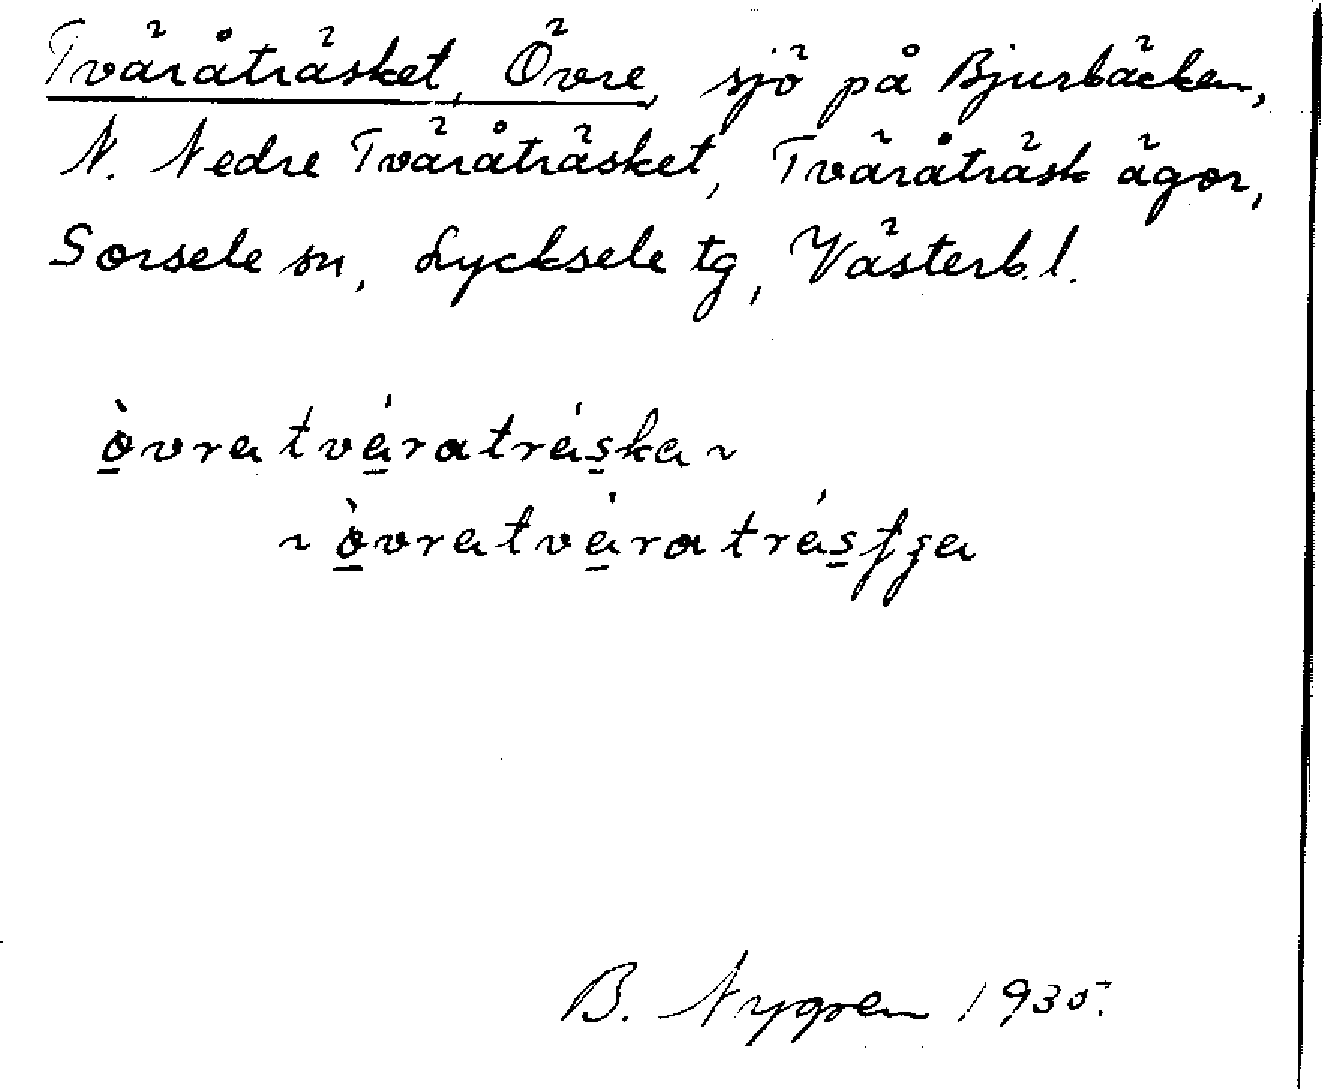 Tväråträsket, Övre, sjö på Bjurbäcken,
N. Nedre Tväråträsket, Tväråträsk ägor,
Sorsele sn, Lycksele tg, Västerb. l.
òvra tváratráska ~
~ òvra tváratrásʃʒa
B. Nygren 1935.